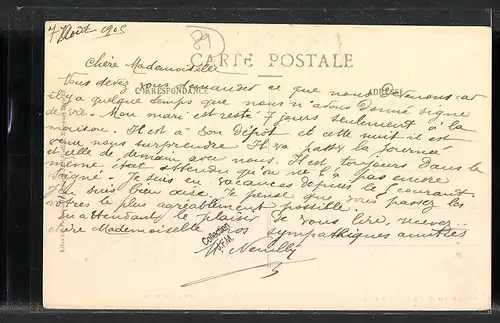 7 Août 1915
89
CARTE POSTALE
CORRESPONDANCE
ADRESSE
Chère Mademoiselle
Vous devez vous demander ce que nous devenons car
il y a quelque temps que nous n'avons donné signe
de vie. Mon mari est resté 7 jours seulement à la
maison. Il est à son dépôt et cette nuit il est
venu nous surprendre Il va passer la journée
et celle de demain avec nous. Il est toujours dans le
même état attendu qu'on ne l'a pas encore
soigné. Je suis en vacances depuis le courant
j'en suis bien aise. Je pense que vous passez les
vôtres le plus agréablement possible.
En attendant le plaisir de vous lire, recevez
chère Mademoiselle nos sympathiques amitiés
Collection
JFM
M Neuilly